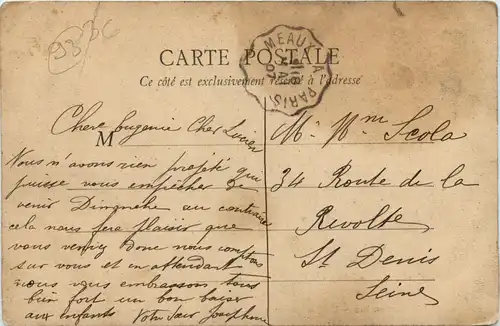 9336
CARTE POSTALE
Ce côté est exclusivement réservé à l'adresse
MEAUX A PARIS
M
Chere Eugenie Cher Lucien
Nous n'avons rien projeté qui
puisse vous empêcher de
venir Dimanche au contraire
cela nous fera plaisir que
vous veniez donc nous comptons
sur vous et en attendant
nous vous embrassons tous
bien fort un bon baiser
aux enfants Votre Sœur Josephine
Mr Mme Scola
34 Route de la
Revolte
St Denis
Seine